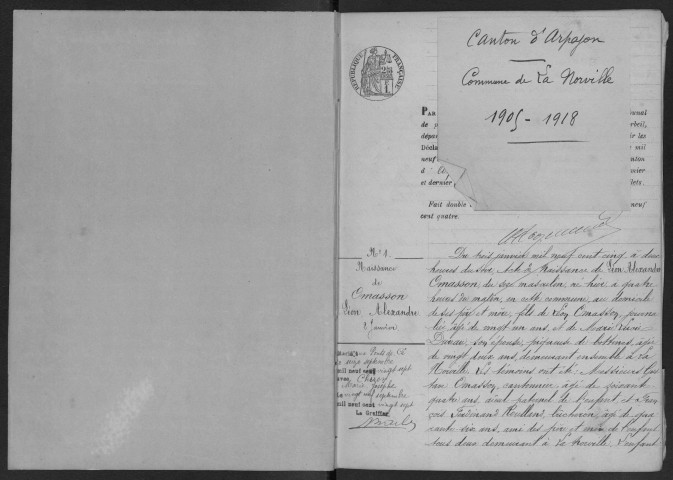 Canton d'Arpajon
Commune de La Norville
1905 - 1918
RÉPUBLIQUE FRANÇAISE
PAR
de
dépa
Décla
neuf
à
et dernier
Fait double
cent quatre.
Du trois janvier mil neuf cent cinq à deux
heures du soir, Acte de Naissance de Léon Alexandre
Omasson, du sexe masculin, né hier à quatre
heures du matin, en cette commune, au domicile
de ses père et mère, fils de Léon Omasson, journa
lier âgé de vingt un ans, et de Marie
son épouse, de bottines, âgée
de vingt deux ans, demeurant ensemble à La
Norville. Les témoins ont été: Messieurs
Omasson, cantonnier, âgé de soixante
quatre ans, aïeul paternel de l'enfant et Fran
çois Ferdinand bucheron, âgé de qua
rante six ans, ami des père et mère de l'enfant
tous deux demeurant à La Norville. L'enfant
N° 1.
Naissance
de
Omasson
Léon Alexandre
2 Janvier
septembre
mil neuf cent vingt sept
avec
Marie
Le vingt septembre
mil neuf cent vingt sept
Le Greffier